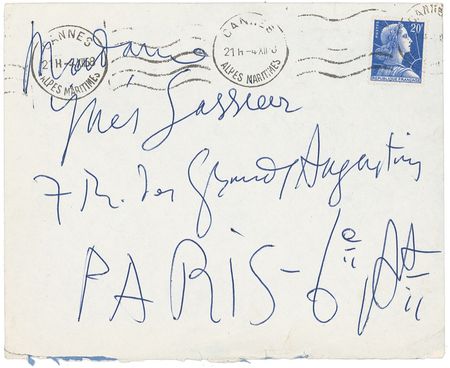 CANNES
21H -4 XII
ALPES MARITIMES
CANNES
21H -4 XII
ALPES MARITIMES
CANNES
20F
Madame
Yvès Sassier
7 R. des Grands Augustins
PARIS - 6e